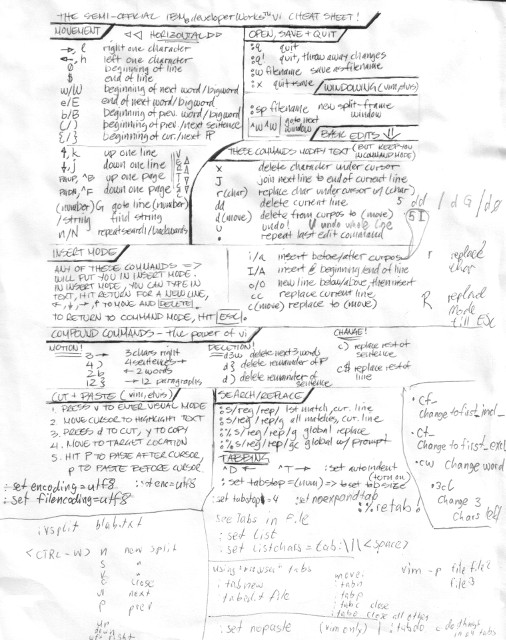 THE SEMI-OFFICIAL IBM developerWorks™ VI CHEAT SHEET!
MOVEMENT
HORIZONTAL
→, l right one character
←, h left one character
0 beginning of line
$ end of line
w/W beginning of next word/bigword
e/E end of next word/bigword
b/B beginning of prev. word/bigword
(/) beginning of prev/next sentence
{/} beginning of cur./next ¶
↑, k up one line
↓, j down one line
PGUP, ^B up one page
PGDN, ^F down one page
(number)G goto line (number)
/string find string
n/N repeat search/backwards
OPEN, SAVE + QUIT
:q quit
:q! quit, throw away changes
:w filename save as filename
:x quit + save
WINDOWING (vim, elvis)
:sp filename new split-frame window
^W^W goto next window
BASIC EDITS
THESE COMMANDS MODIFY TEXT (BUT KEEP YOU IN COMMAND MODE)
x delete character under cursor
J join next line to end of current line
r(char) replace char under cursor w/(char)
dd delete current line
d(move) delete from curpos to (move)
u undo! U undo whole line
. repeat last edit command
5 dd / dG / d0
5J
INSERT MODE
ANY OF THESE COMMANDS =>
WILL PUT YOU IN INSERT MODE.
IN INSERT MODE, YOU CAN TYPE IN
TEXT, HIT RETURN FOR A NEW LINE,
←, ↓, →, ↑ TO MOVE AND DELETE.
TO RETURN TO COMMAND MODE, HIT ESC.
i/a insert before/after curpos
I/A insert @ beginning/end of line
o/O new line below/above, then insert
cc replace current line
c(move) replace to (move)
r replace char
R replace mode till ESC
COMPOUND COMMANDS - the power of vi
MOTION!
3→ 3 chars right
4) 4 sentences→
2b ← 2 words
12} → 12 paragraphs
DELETION!
d3w delete next 3 words
d} delete remainder of ¶
d) delete remainder of sentence
CHANGE!
c) replace rest of sentence
c$ replace rest of line
CUT + PASTE (vim, elvis)
1. PRESS v TO ENTER VISUAL MODE
2 MOVE CURSOR TO HIGHLIGHT TEXT
3 PRESS d TO CUT, y TO COPY
4. MOVE TO TARGET LOCATION
5. HIT P TO PASTE AFTER CURSOR,
P TO PASTE BEFORE CURSOR
:set encoding=utf8
:set filencoding=utf8
SEARCH/REPLACE
:s/reg/rep/ 1st match, cur. line
:s/reg/rep/g all matches, cur. line
:%s/reg/rep/g global replace
:%s/reg/rep/gc global w/prompt
TABBING
^D ← ^T → :set autoindent (turn on)
:set tabstop=(num) => set tab size
:set tabstop=4 :set noexpandtab
:%retab!
see Tabs in file
:set list
:set listchars=tab:\|\<space>
cf_
change to first_incl_
ct_
change to first_excl
cw change word
3cl
Change 3
chars
:vsplit blob.txt
<CTRL-W> n new split
close
next
p prev
tabs
:tabnew
move:
:tabn
:tabp
:tabc close
vim -p file file2
file3
:set nopaste (vim only)